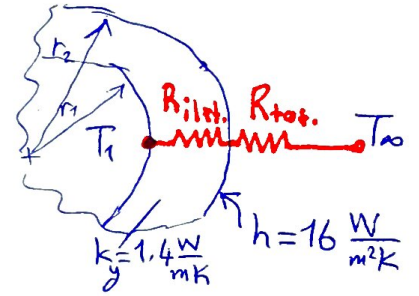 r₂
r₁
T₁
R ilet.
R tot.
T∞
k_y = 1.4 W/mK
h = 16 W/m²K